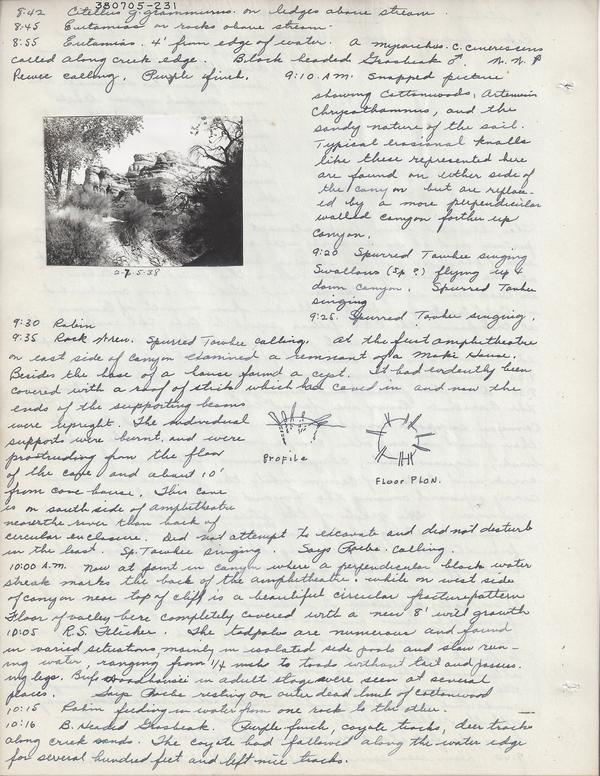 380705-231
8:42 Citellus g. grammurus. on ledges above stream.
8:45 Eutamias on rocks above stream.
8:55 Eutamias. 4' from edge of water. A myiarchus. c. cinerescens
called along creek edge. Black headed Grosbeak ♂. W. W. P
Pewee calling. Purple finch. 9:10 A.M. Snapped picture
showing Cottonwoods, Artemisia
Chrysothamnus, and the
sandy nature of the soil.
Typical erosional knolls
like these represented here
are found on either side of
the canyon but are replac-
ed by a more perpendicular
walled canyon farther up
canyon.
2-7-5-38
9:20 Spurred Towhee singing
Swallows (sp?) flying up &
down canyon. Spurred Towhee
singing
9:25. Spurred Towhee singing.
9:30 Robin
9:35 Rock Wren. Spurred Towhee calling. At the first amphitheatre
on east side of canyon examined a remnant of a Moki House.
Besides the base of a house found a cist. It had evidently been
covered with a roof of sticks which had caved in and now the
ends of the supporting beams
were upright. The individual
supports were burnt, and were
protruding from the floor
of the cave and about 10'
from cave house. This cave
is on south side of amphitheatre
nearer the river than back of
Profile
FLOOR PLAN.
circular enclosure. Did not attempt to excavate and did not disturb
in the least. Sp. Towhee singing. Says Phoebe. Calling.
10:00 A.M. Now at point in canyon where a perpendicular black water
streak marks the back of the amphitheatre. while on west side
of canyon near top of cliff is a beautiful circular fracture pattern
Floor of valley here completely covered with a new 8' willow growth
10:05 R.S. Flicker. The tadpoles are numerous and found
in varied situations, mainly in isolated side pools and slow run-
ing water, ranging from 1/4 inchs to toads without tail and possess-
ing legs. Bufo woodhousii in adult stage were seen at several
places. Says Phoebe resting on outer dead limb of cottonwood
10:15 Robin feeding in water from one rock to the other.
10:16 B. Headed Grosbeak. Purple finch, coyote tracks, deer tracks
along creek sands. The coyote had followed along the water edge
for several hundred feet and left nice tracks.